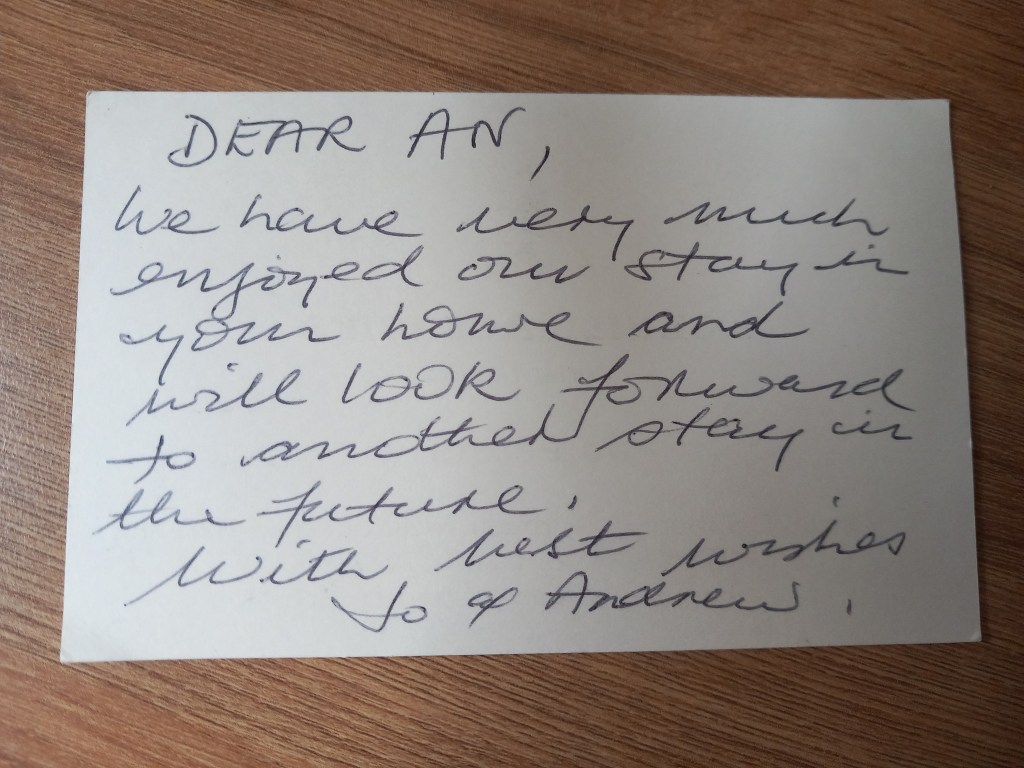 DEAR AN,
We have very much
enjoyed our stay in
your home and
will look forward
to another stay in
the future.
With best wishes
Jo & Andrew.